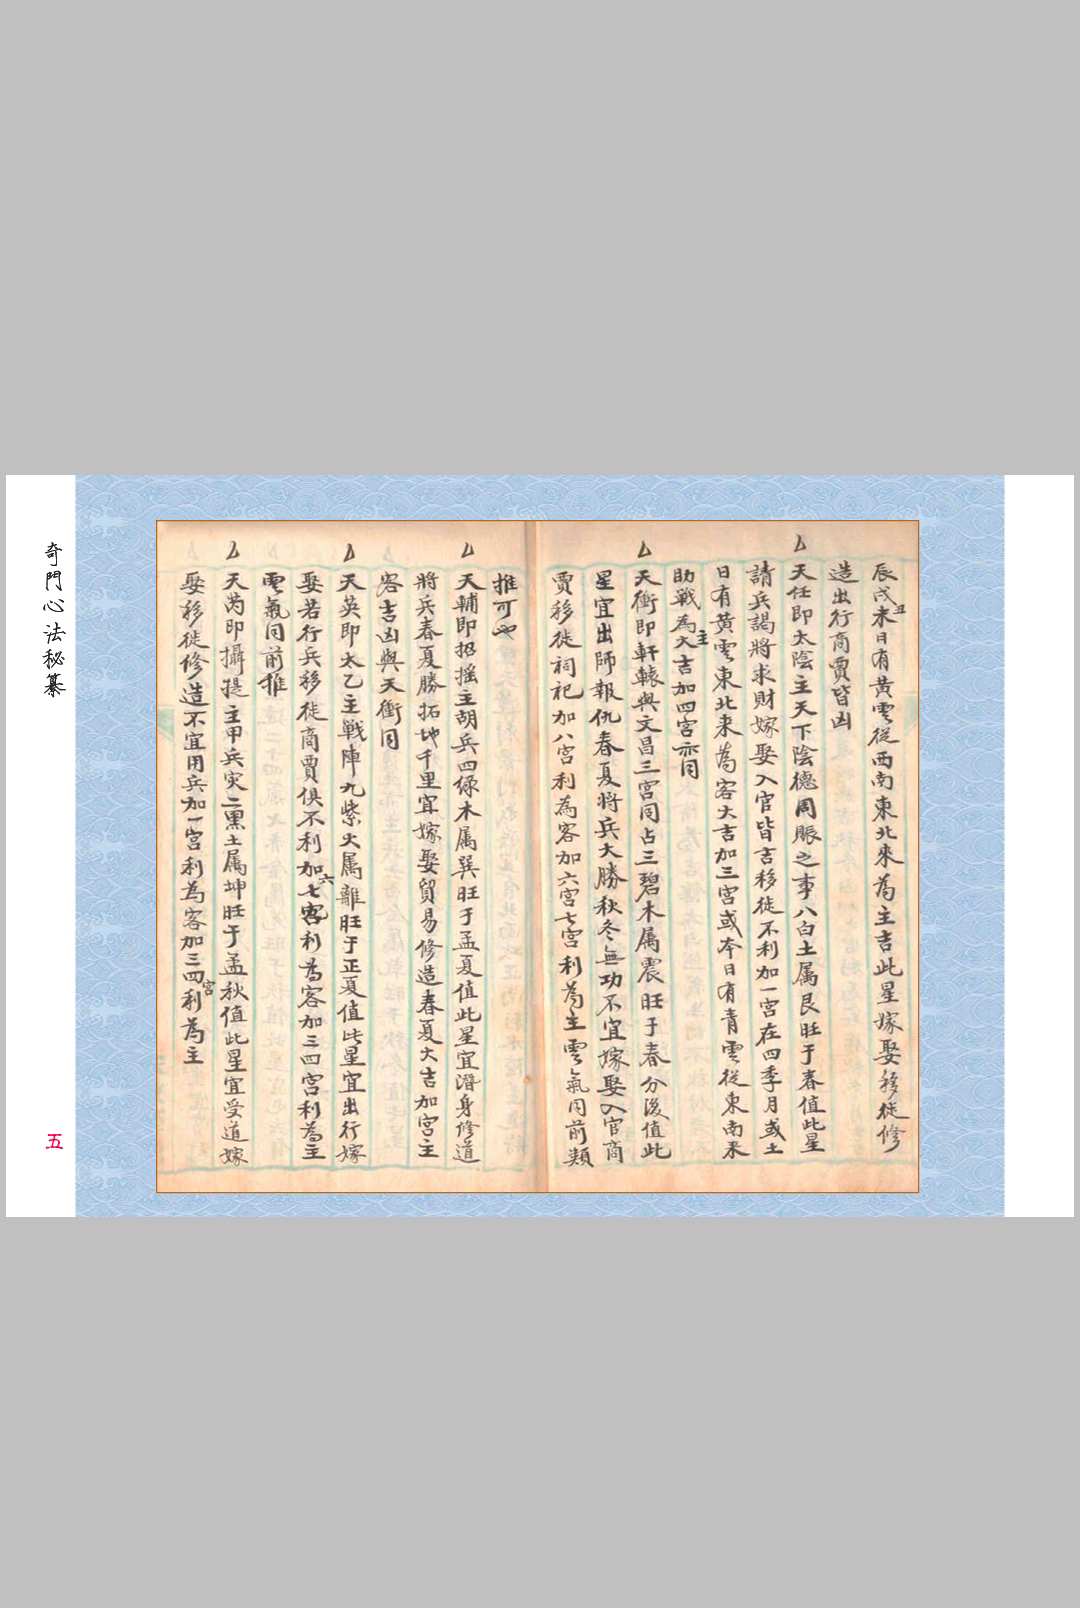 辰戌丑未日有黃雲從西南東北來為主吉此星嫁娶移徙修
造出行商賈皆凶
天任即太陰主天下陰德周賑之事八白土属艮旺于春值此星
請兵謁將求財嫁娶入官皆吉移徙不利加一宮在四季月或土
日有黃雲東北来為客大吉加三宮或本日有青雲從東南来
助戰為主大吉加四宮亦同
天衝即軒轅與文昌三宮同占三碧木属震旺于春分後值此
星宜出師報仇春夏將兵大勝秋冬無功不宜嫁娶入官商
賈移徙祠祀加八宮利為客加六宮七宮利為主雲氣同前類
推可也
天輔即招摇主胡兵四绿木属巽旺于孟夏值此星宜潛身修道
將兵春夏勝拓地千里宜嫁娶貿易修造春夏大吉加宮主
客吉凶與天衝同
天英即太乙主戰陣九紫火属離旺于正夏值此星宜出行嫁
娶若行兵移徙商賈俱不利加六七宮利為客加三四宮利為主
雲氣同前推
天芮即攝提主甲兵灾二黒土属坤旺于孟秋值此星宜受道嫁
娶移徙修造不宜用兵加一宮利為客加三四宮利為主
奇門心法秘纂
五